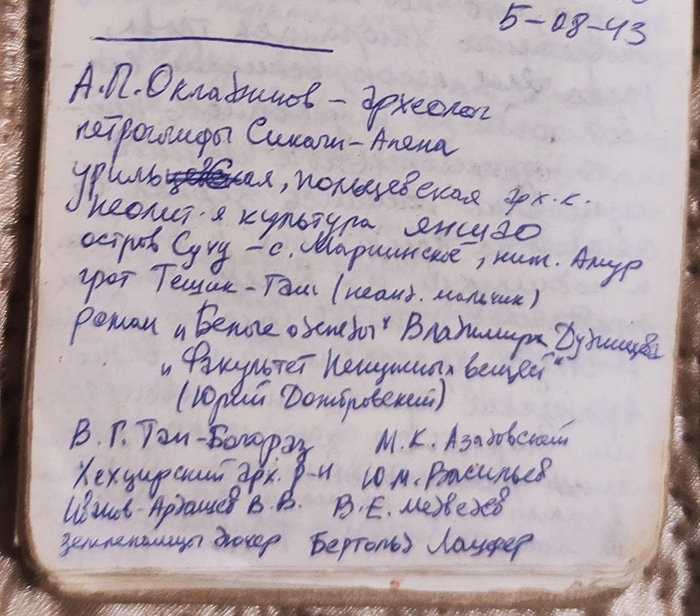 5-08-43
А.П.Окладников – археолог
петроглифы Сикачи-Аляна
урильская, польцевская арх.к.
неолит-я культура яншао
остров Сучу – с. Мариинское, ниж. Амур
грот Тешик-Таш (неанд. мальчик)
роман „Белые одежды" Владимира Дудинцева
„Факультет ненужных вещей"
(Юрий Домбровский)
В.Г. Тан-Богораз М.К. Азадовский
Хехцирский арх. р-н Ю.М. Васильев
Иванов-Ардашев В.В. В.Е. Медведев
земл��пашцы дючер Бертольд Лауфер